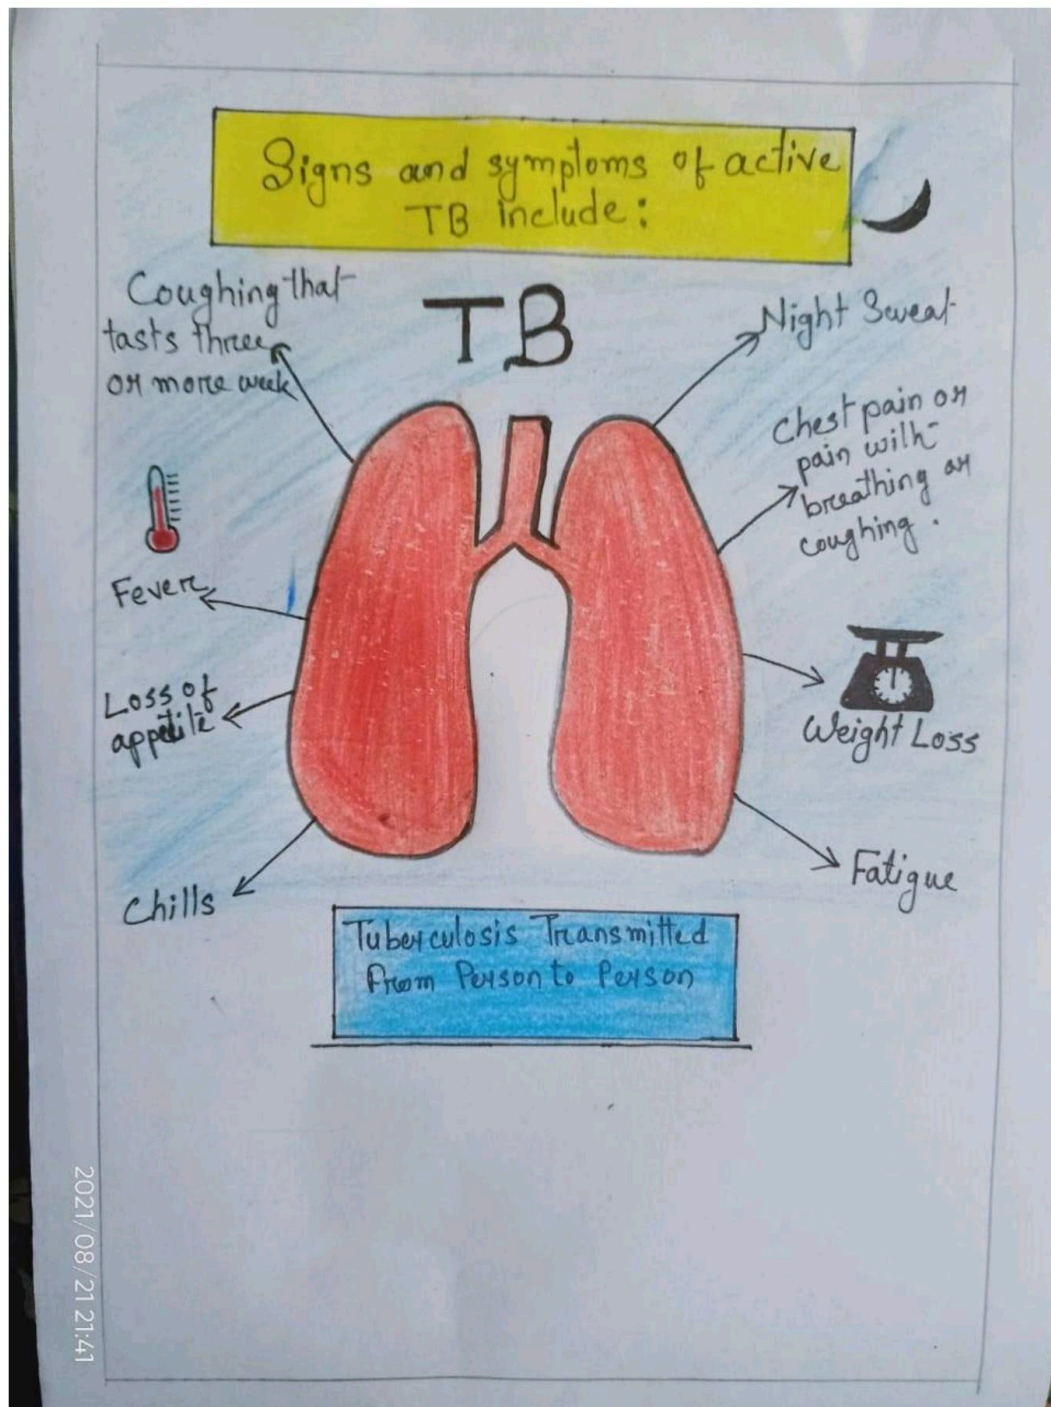 Signs and symptoms of active
TB include:
TB
Coughing that
tasts three
or more week
Night Sweat
Chest pain or
pain with
breathing or
coughing.
Fever
Loss of
appetite
Weight Loss
Chills
Fatigue
Tuberculosis Transmitted
From Person to Person
2021/08/21 21:41